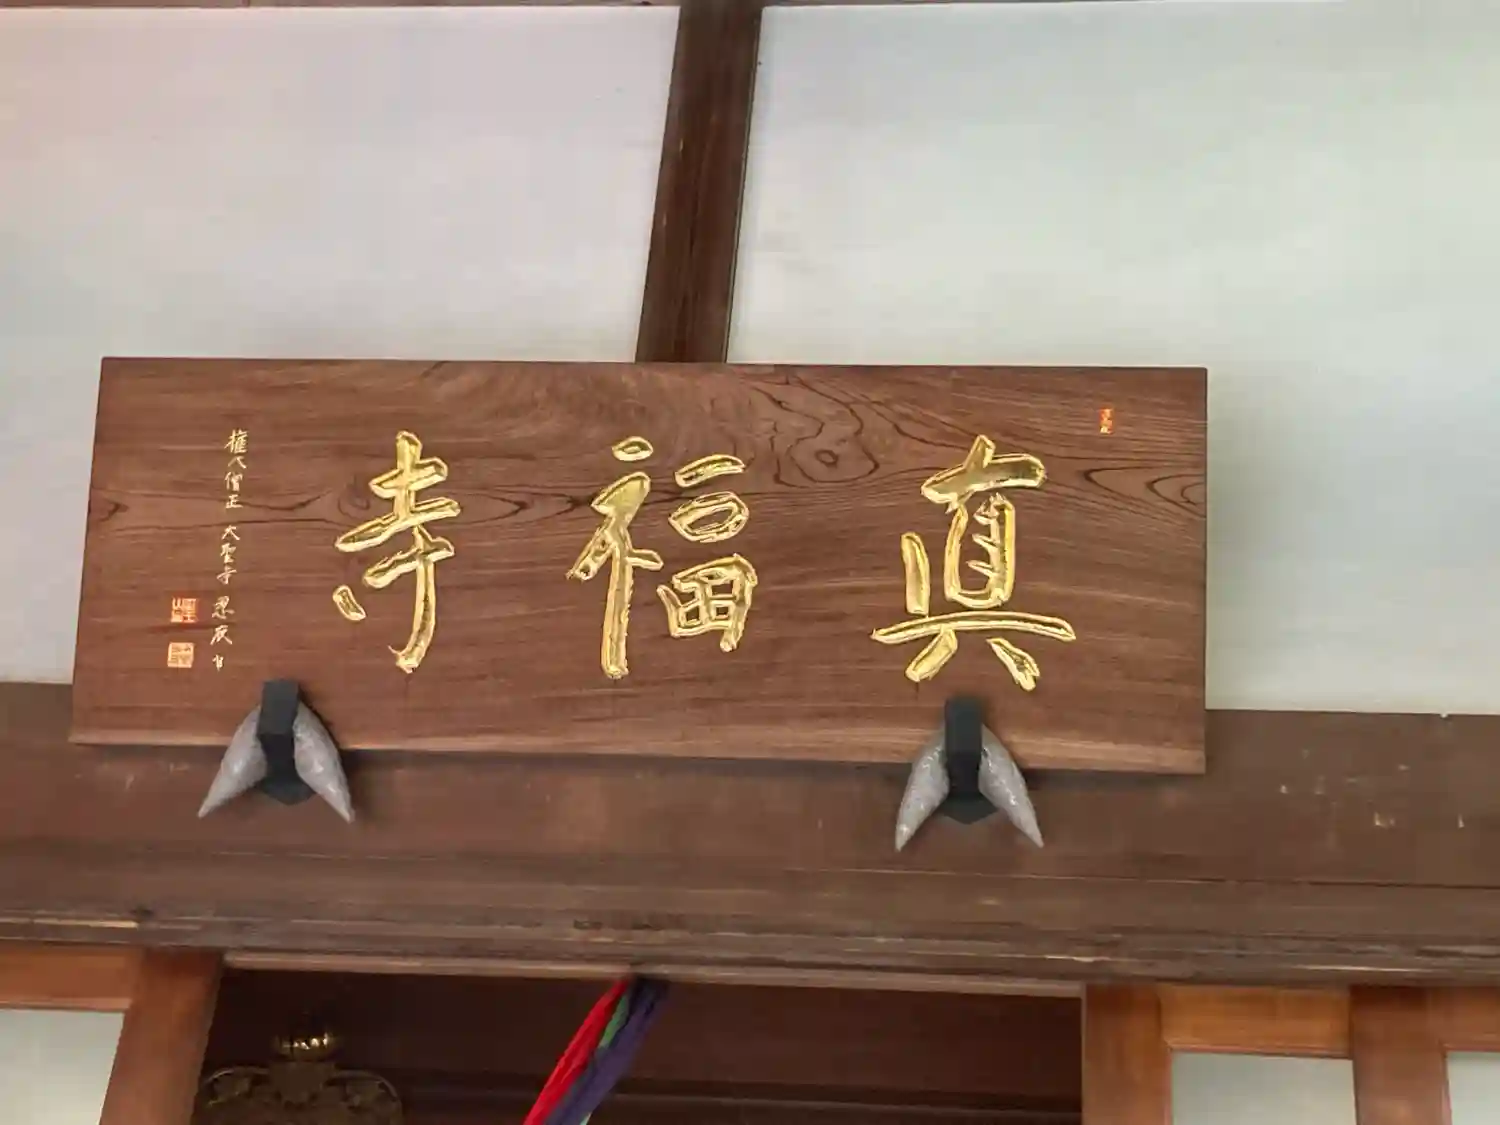 真福寺
権大僧正 大聖寺